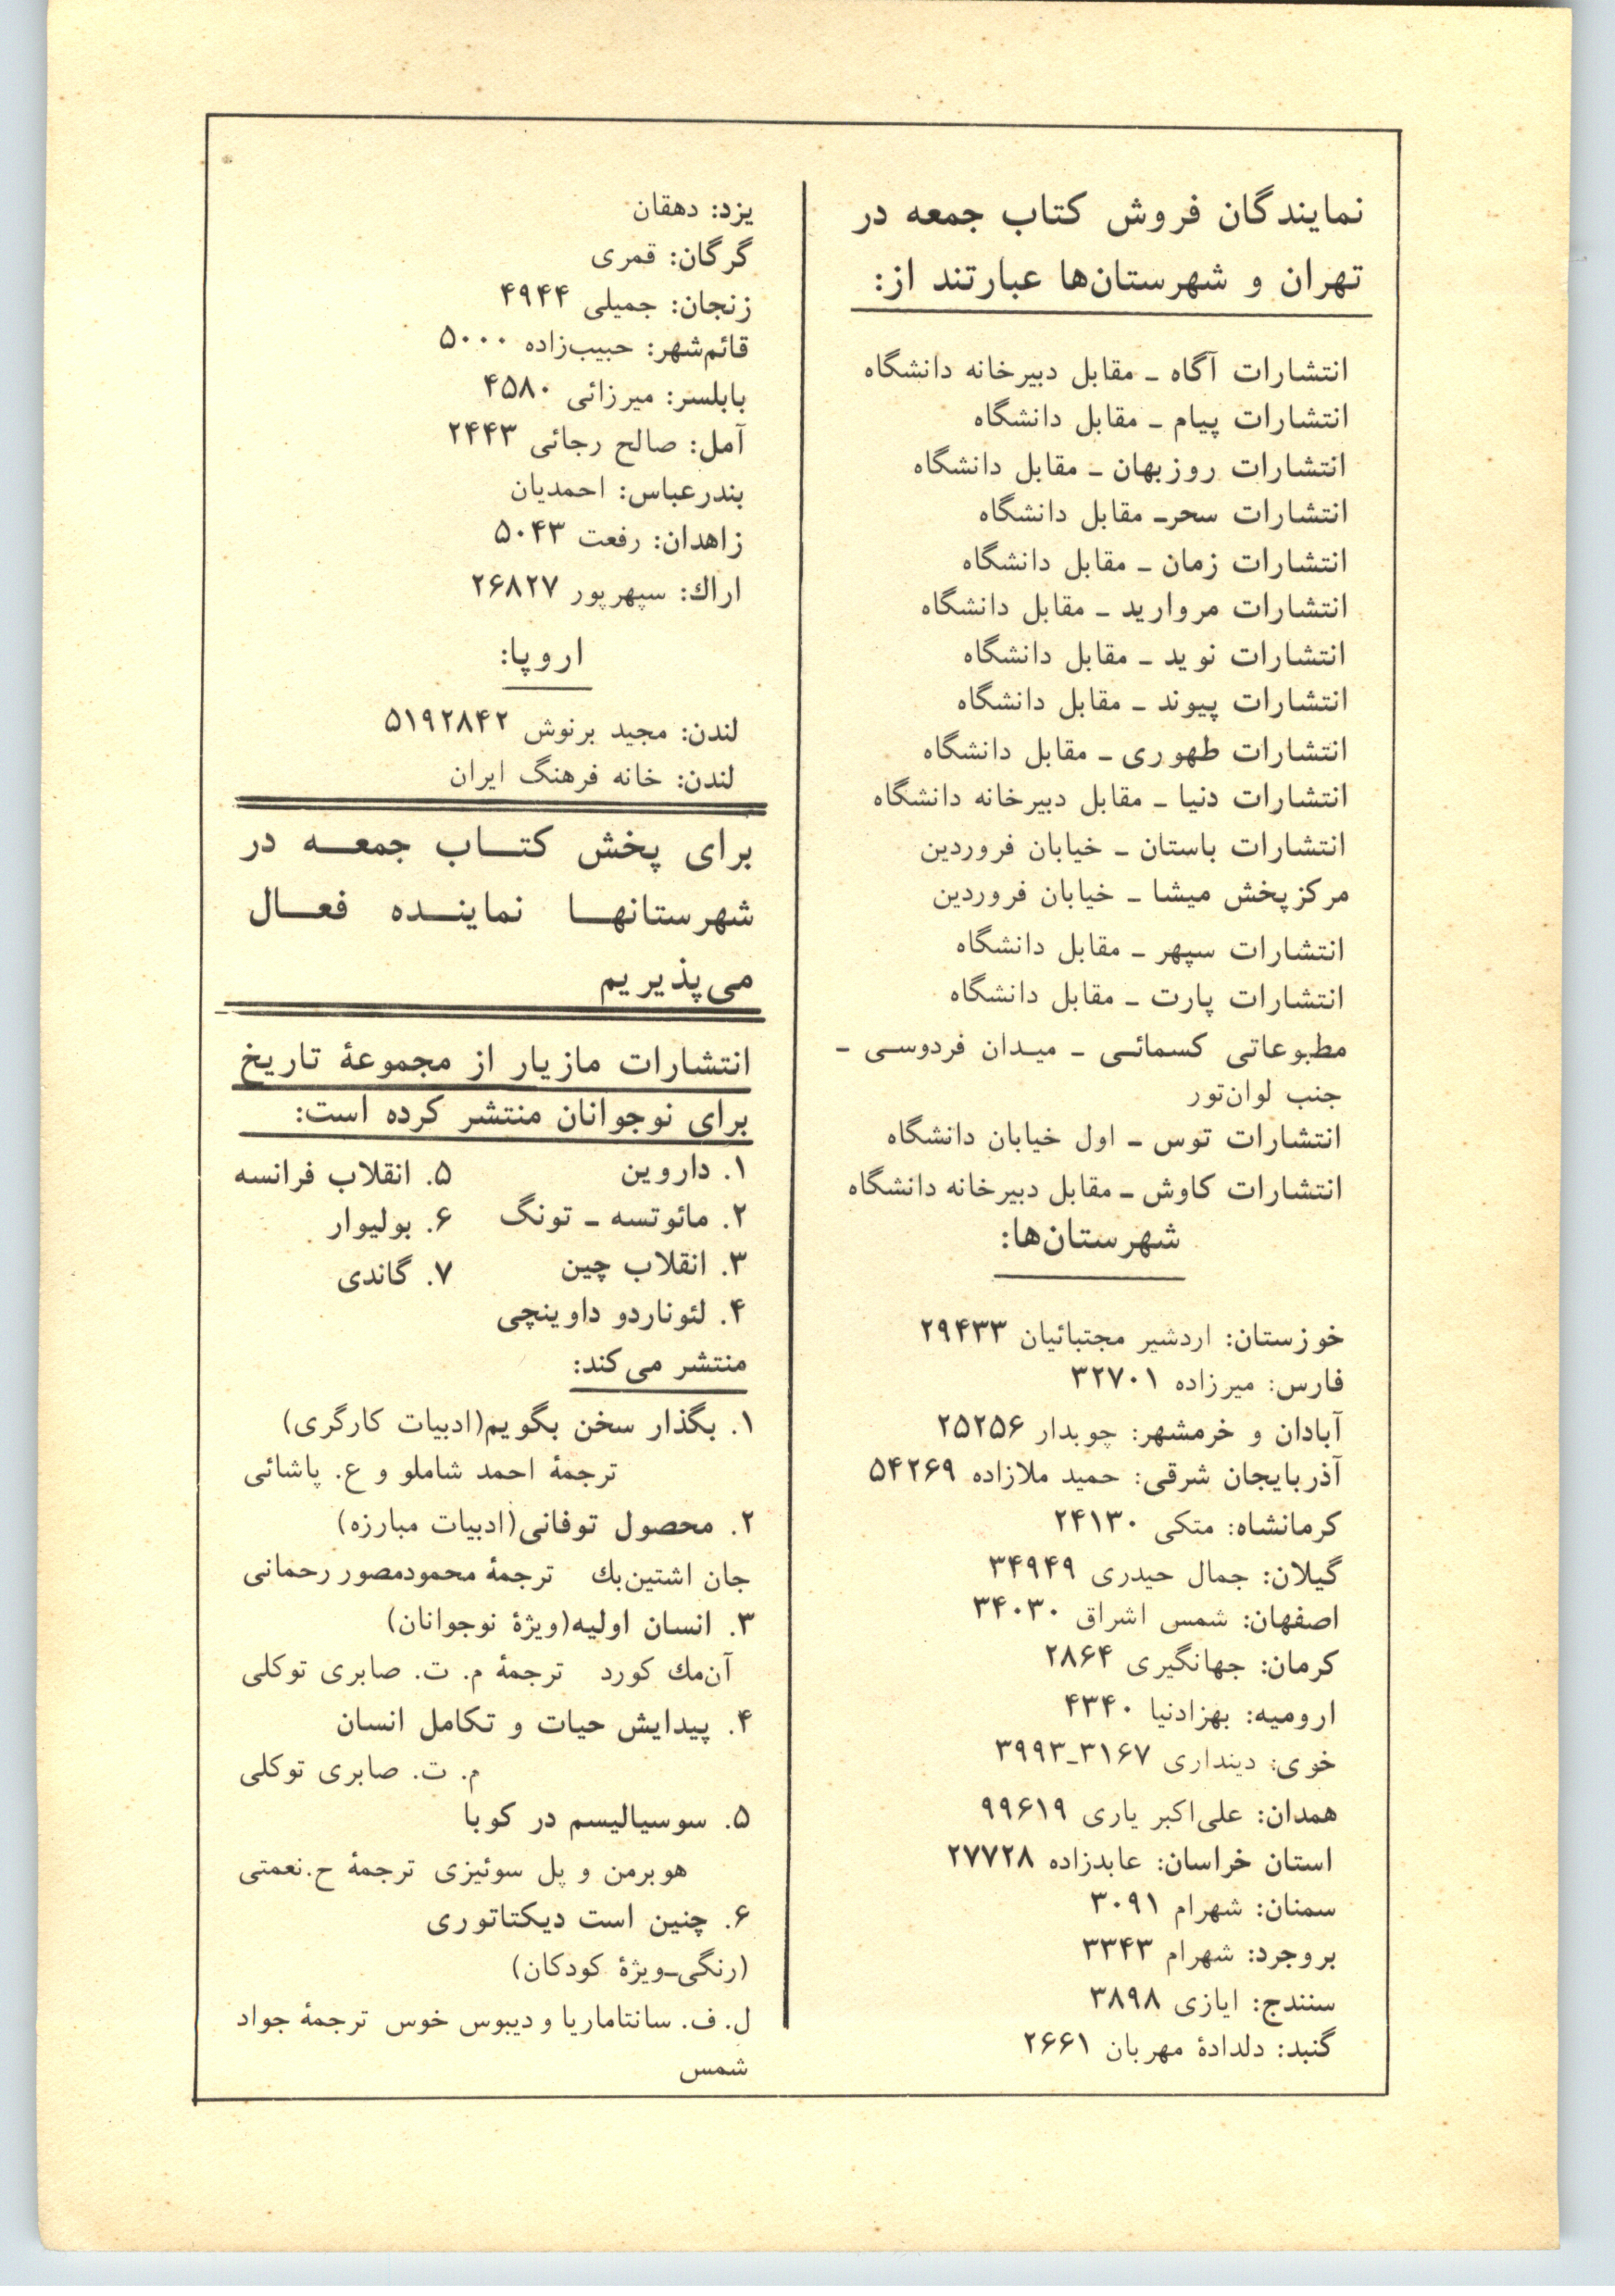 نمایندگان فروش کتاب جمعه در
تهران و شهرستان‌ها عبارتند از:
انتشارات آگاه ـ مقابل دبیرخانه دانشگاه
انتشارات پیام ـ مقابل دانشگاه
انتشارات روزبهان ـ مقابل دانشگاه
انتشارات سحرـ مقابل دانشگاه
انتشارات زمان ـ مقابل دانشگاه
انتشارات مروارید ـ مقابل دانشگاه
انتشارات نوید ـ مقابل دانشگاه
انتشارات پیوند ـ مقابل دانشگاه
انتشارات طهوری ـ مقابل دانشگاه
انتشارات دنیا ـ مقابل دبیرخانه دانشگاه
انتشارات باستان ـ خیابان فروردین
مرکزپخش میشا ـ خیابان فروردین
انتشارات سپهر ـ مقابل دانشگاه
انتشارات پارت ـ مقابل دانشگاه
مطبوعاتی کسمائی ـ میدان فردوسی ـ
جنب لوان‌تور
انتشارات توس ـ اول خیابان دانشگاه
انتشارات کاوش ـ مقابل دبیرخانه دانشگاه
شهرستان‌ها:
خوزستان: اردشیر مجتبائیان ۲۹۴۳۳
فارس: میرزاده ۳۲۷۰۱
آبادان و خرمشهر: چوبدار ۲۵۲۵۶
آذربایجان شرقی: حمید ملازاده ۵۴۲۶۹
کرمانشاه: متکی ۲۴۱۳۰
گیلان: جمال حیدری ۳۴۹۴۹
اصفهان: شمس اشراق ۳۴۰۳۰
کرمان: جهانگیری ۲۸۶۴
ارومیه: بهزادنیا ۴۳۴۰
خوی: دینداری ۳۱۶۷ـ۳۹۹۳
همدان: علی‌اکبر یاری ۹۹۶۱۹
استان خراسان: عابدزاده ۲۷۷۲۸
سمنان: شهرام ۳۰۹۱
بروجرد: شهرام ۳۳۴۳
سنندج: ایازی ۳۸۹۸
گنبد: دلدادهٔ مهربان ۲۶۶۱
یزد: دهقان
گرگان: قمری
زنجان: جمیلی ۴۹۴۴
قائم‌شهر: حبیب‌زاده ۵۰۰۰
بابلسر: میرزائی ۴۵۸۰
آمل: صالح رجائی ۲۴۴۳
بندرعباس: احمدیان
زاهدان: رفعت ۵۰۴۳
اراك: سپهرپور ۲۶۸۲۷
اروپا:
لندن: مجید برنوش ۵۱۹۲۸۴۲
لندن: خانه فرهنگ ایران
برای پخش کتـــاب جمعـــه در
شهرستانهـــا نماینـــده فعـــال
می‌پذیریم
انتشارات مازیار از مجموعهٔ تاریخ
برای نوجوانان منتشر کرده است:
۱. داروین
۲. مائوتسه ـ تونگ
۳. انقلاب چین
۴. لئوناردو داوینچی
۵. انقلاب فرانسه
۶. بولیوار
۷. گاندی
منتشر می‌کند:
۱. بگذار سخن بگویم(ادبیات کارگری)
ترجمهٔ احمد شاملو و ع. پاشائی
۲. محصول توفانی(ادبیات مبارزه)
جان اشتین‌بك ترجمهٔ محمودمصور رحمانی
۳. انسان اولیه(ویژهٔ نوجوانان)
آن‌مك کورد ترجمهٔ م. ت. صابری توکلی
۴. پیدایش حیات و تکامل انسان
م. ت. صابری توکلی
۵. سوسیالیسم در کوبا
هوبرمن و پل سوئیزی ترجمهٔ ح.نعمتی
۶. چنین است دیکتاتوری
(رنگی‌ـ‌ویژهٔ کودکان)
ل. ف. سانتاماریا و دیبوس خوس ترجمهٔ جواد
شمس